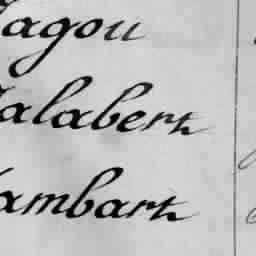 Jagou
Jalabert
Jambart